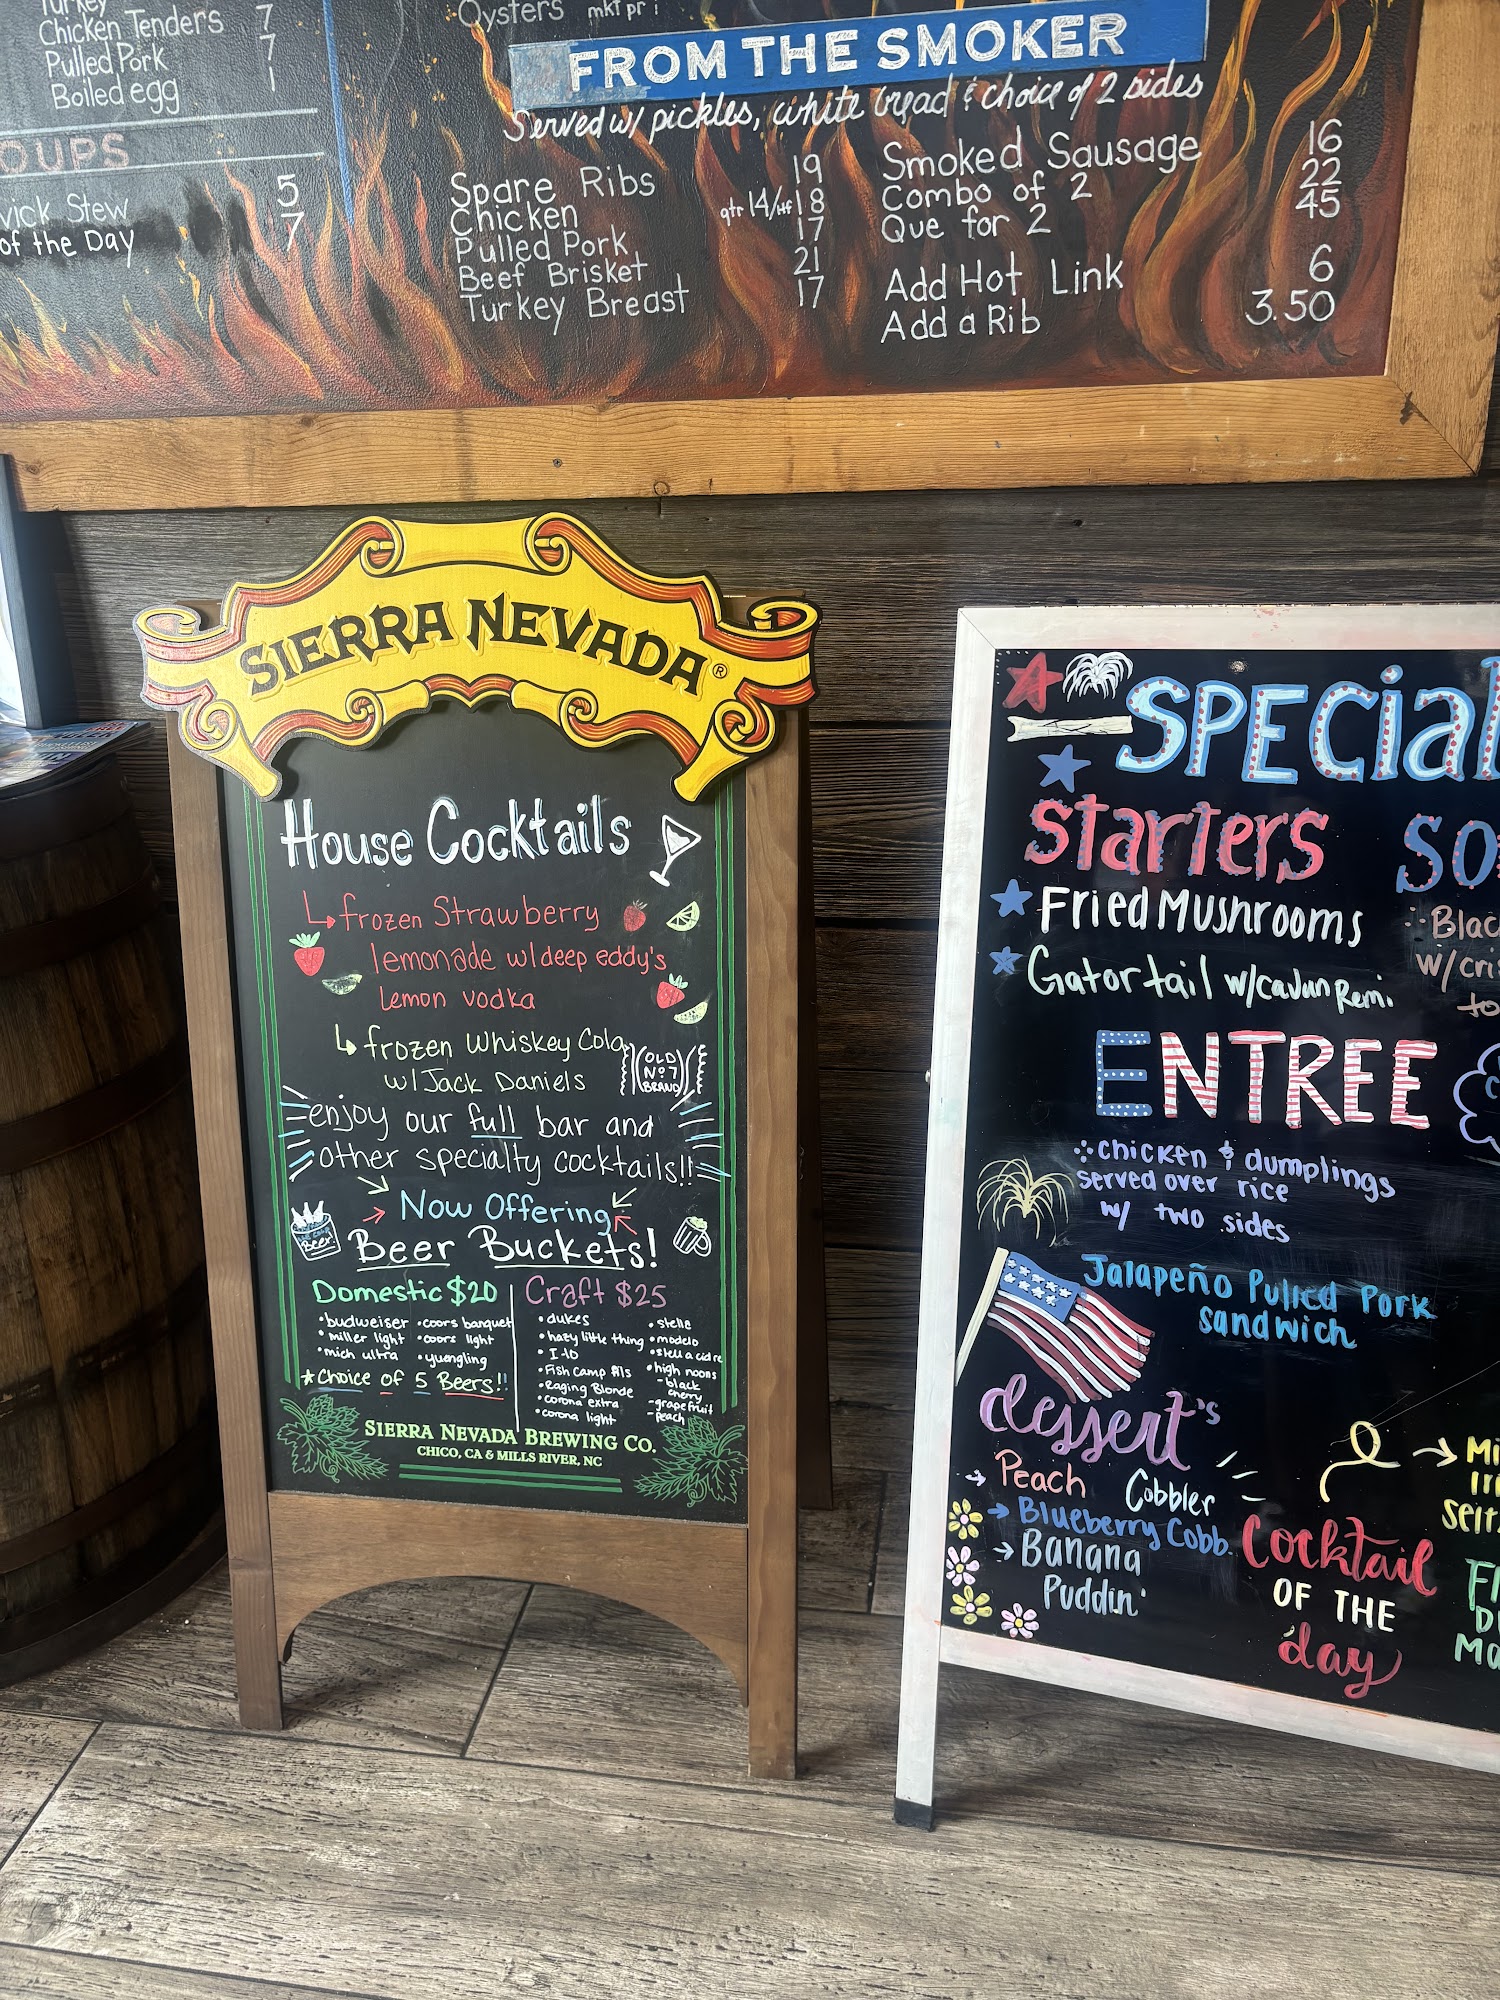 Turkey
Chicken Tenders 7
Pulled Pork 7
Boiled egg 1
OUPS
wick Stew 5
of the Day 7
Oysters mkt pr
FROM THE SMOKER
Served w/ pickles, white bread & choice of 2 sides
Spare Ribs 19
Chicken qtr 14/Hf 18
Pulled Pork 17
Beef Brisket 21
Turkey Breast 17
Smoked Sausage 16
Combo of 2 22
Que for 2 45
Add Hot Link 6
Add a Rib 3.50
SIERRA NEVADA®
House Cocktails
frozen Strawberry
lemonade w/deep eddy's
Lemon vodka
frozen Whiskey Cola
w/Jack Daniels
OLD
No 7
BRAND
enjoy our full bar and
other specialty cocktails!!
Now Offering
Beer Buckets!
Beer
Domestic $20
• budweiser • coors banquet
• miller light • coors light
• mich ultra • yuengling
★ Choice of 5 Beers!!
Craft $25
• dukes
• hazy little thing
• I-10
• Fish camp
• Raging Blonde
• corona extra
• corona light
• stella
• modelo
• stella cidre
• high noons
- black
cherry
- grapefruit
- peach
SIERRA NEVADA BREWING CO.
CHICO, CA & MILLS RIVER, NC
SPECial
Starters
Fried Mushrooms
Gator tail w/cajun Remi.
SO
Blac
w/cri
to
ENTREE
chicken & dumplings
served over rice
w/ two sides
Jalapeño Pulled Pork
sandwich
dessert's
Peach Cobbler
Blueberry Cobb.
Banana
Puddin'
Cocktail
OF THE
day
Mi
Seltz
Ma